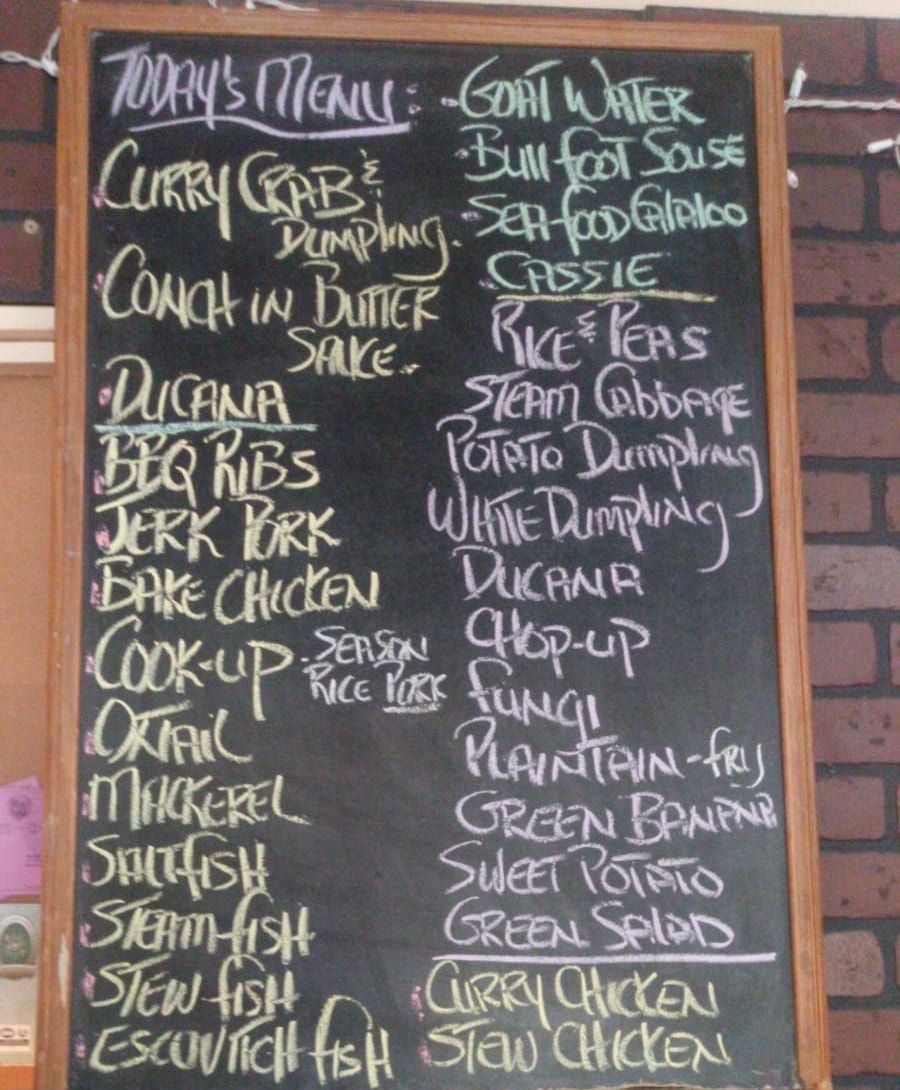 TODAY'S MENU:
CURRY CRAB &
DUMPLING.
CONCH IN BUTTER
SAUCE..
DUCANA
BBQ RIBS
JERK PORK
BAKE CHICKEN
COOK-UP - SEASON
RICE PORK
OXTAIL
MACKEREL
SALTFISH
STEAM-FISH
STEW FISH
ESCOVITCH FISH
GOAT WATER
BULL FOOT SOUSE
SEAFOOD CALALOO
CASSIE
RICE & PEAS
STEAM CABBAGE
POTATO DUMPLING
WHITE DUMPLING
DUCANA
CHOP-UP
FUNGI
PLAINTAIN-FRY
GREEN BANANA
SWEET POTATO
GREEN SALAD
CURRY CHICKEN
STEW CHICKEN